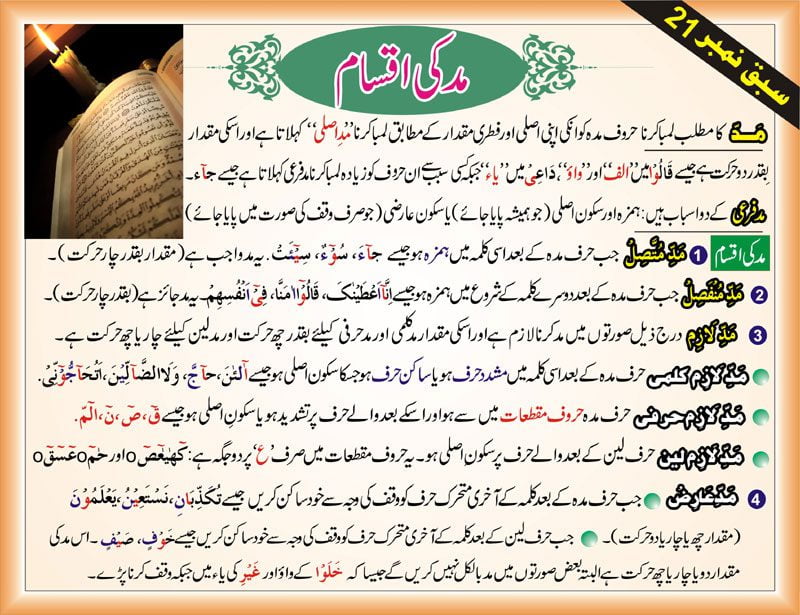 سبق نمبر 21
مد کی اقسام
مَدّ کا مطلب لمبا کرنا حروف مدہ کو انکی اپنی اصلی اور فطری مقدار کے مطابق لمبا کرنا ’’مدِ اصلی‘‘ کہلاتا ہے اور اسکی مقدار
بقدر دو حرکت ہے جیسے قَالُوْا میں ’’الف‘‘ اور ’’واؤ‘‘، دَاعِیْ میں ’’یاء‘‘ جبکہ کسی سبب سے ان حروف کو زیادہ لمبا کرنا مدفرعی کہلاتا ہے جیسے جآء۔
مدِ فرعی کے دو اسباب ہیں: ہمزہ اور سکون اصلی (جو ہمیشہ پایا جائے) یا سکون عارضی (جو صرف وقف کی صورت میں پایا جائے)
مد کی اقسام 1 مَدِّ مُتَّصِلْ جب حرف مدہ کے بعد اسی کلمہ میں ہمزہ ہو جیسے جآءَ، سُوْٓءٌ، سِیْٓئَتْ. یہ مد واجب ہے (مقدار بقدر چار حرکت)۔
2 مَدِّ مُنْفَصِلْ جب حرف مدہ کے بعد دوسرے کلمہ کے شروع میں ہمزہ ہو جیسے اِنَّآ اَعْطَیْنٰکَ، قَالُوْٓا اٰمَنَّا، فِیْٓ اَنْفُسِهِمْ۔ یہ مد جائز ہے (بقدر چار حرکت)۔
3 مَدِّ لَازِمْ درج ذیل صورتوں میں مد کرنا لازم ہے اور اسکی مقدار مد کلمی اور مد حرفی کیلئے بقدر چھ حرکت اور مد لین کیلئے چار یا چھ حرکت ہے۔
مَدِّ لَازم کلمی حرف مدہ کے بعد اسی کلمہ میں مشدد حرف ہو یا ساکن حرف ہو جسکا سکون اصلی ہو جیسے آلْئٰنَ، حآجَّ، وَلَا الضَّآلِّیْنَ، اَتُحَآجُّوْٓنِّیْ.
مَدِّ لَازم حرفی حرف مدہ حروف مقطعات میں سے ہو اور اسکے بعد والے حرف پر تشدید ہو یا سکونِ اصلی ہو جیسے قٓ، صٓ، نٓ، الٓمّٓ.
مَدِّ لَازم لین حرف لین کے بعد والے حرف پر سکونِ اصلی ہو۔ یہ حروف مقطعات میں صرف ’ع‘ پر دو جگہ ہے: کٓهٰیٰعٓصٓ o اور حٰمٓ o عٓسٓقٓ o
4 مَدِّ عَارِض جب حرف مدہ کے بعد کلمہ کے آخری متحرک حرف کو وقف کی وجہ سے خود ساکن کریں جیسے تُکَذِّبَانِ، نَسْتَعِیْنُ، یَعْلَمُوْنَ
(مقدار چھ یا چار یا دو حرکت)۔ جب حرف لین کے بعد کلمہ کے آخری متحرک حرف کو وقف کی وجہ سے خود ساکن کریں جیسے خَوْفٍ، صَیْفٍ۔ اس مد کی
مقدار دو یا چار یا چھ حرکت ہے البتہ بعض صورتوں میں مد بالکل نہیں کریں گے جیسا کہ خَلَوْا کے واؤ اور غَیْرِ کی یاء میں جبکہ وقف کرنا پڑے۔